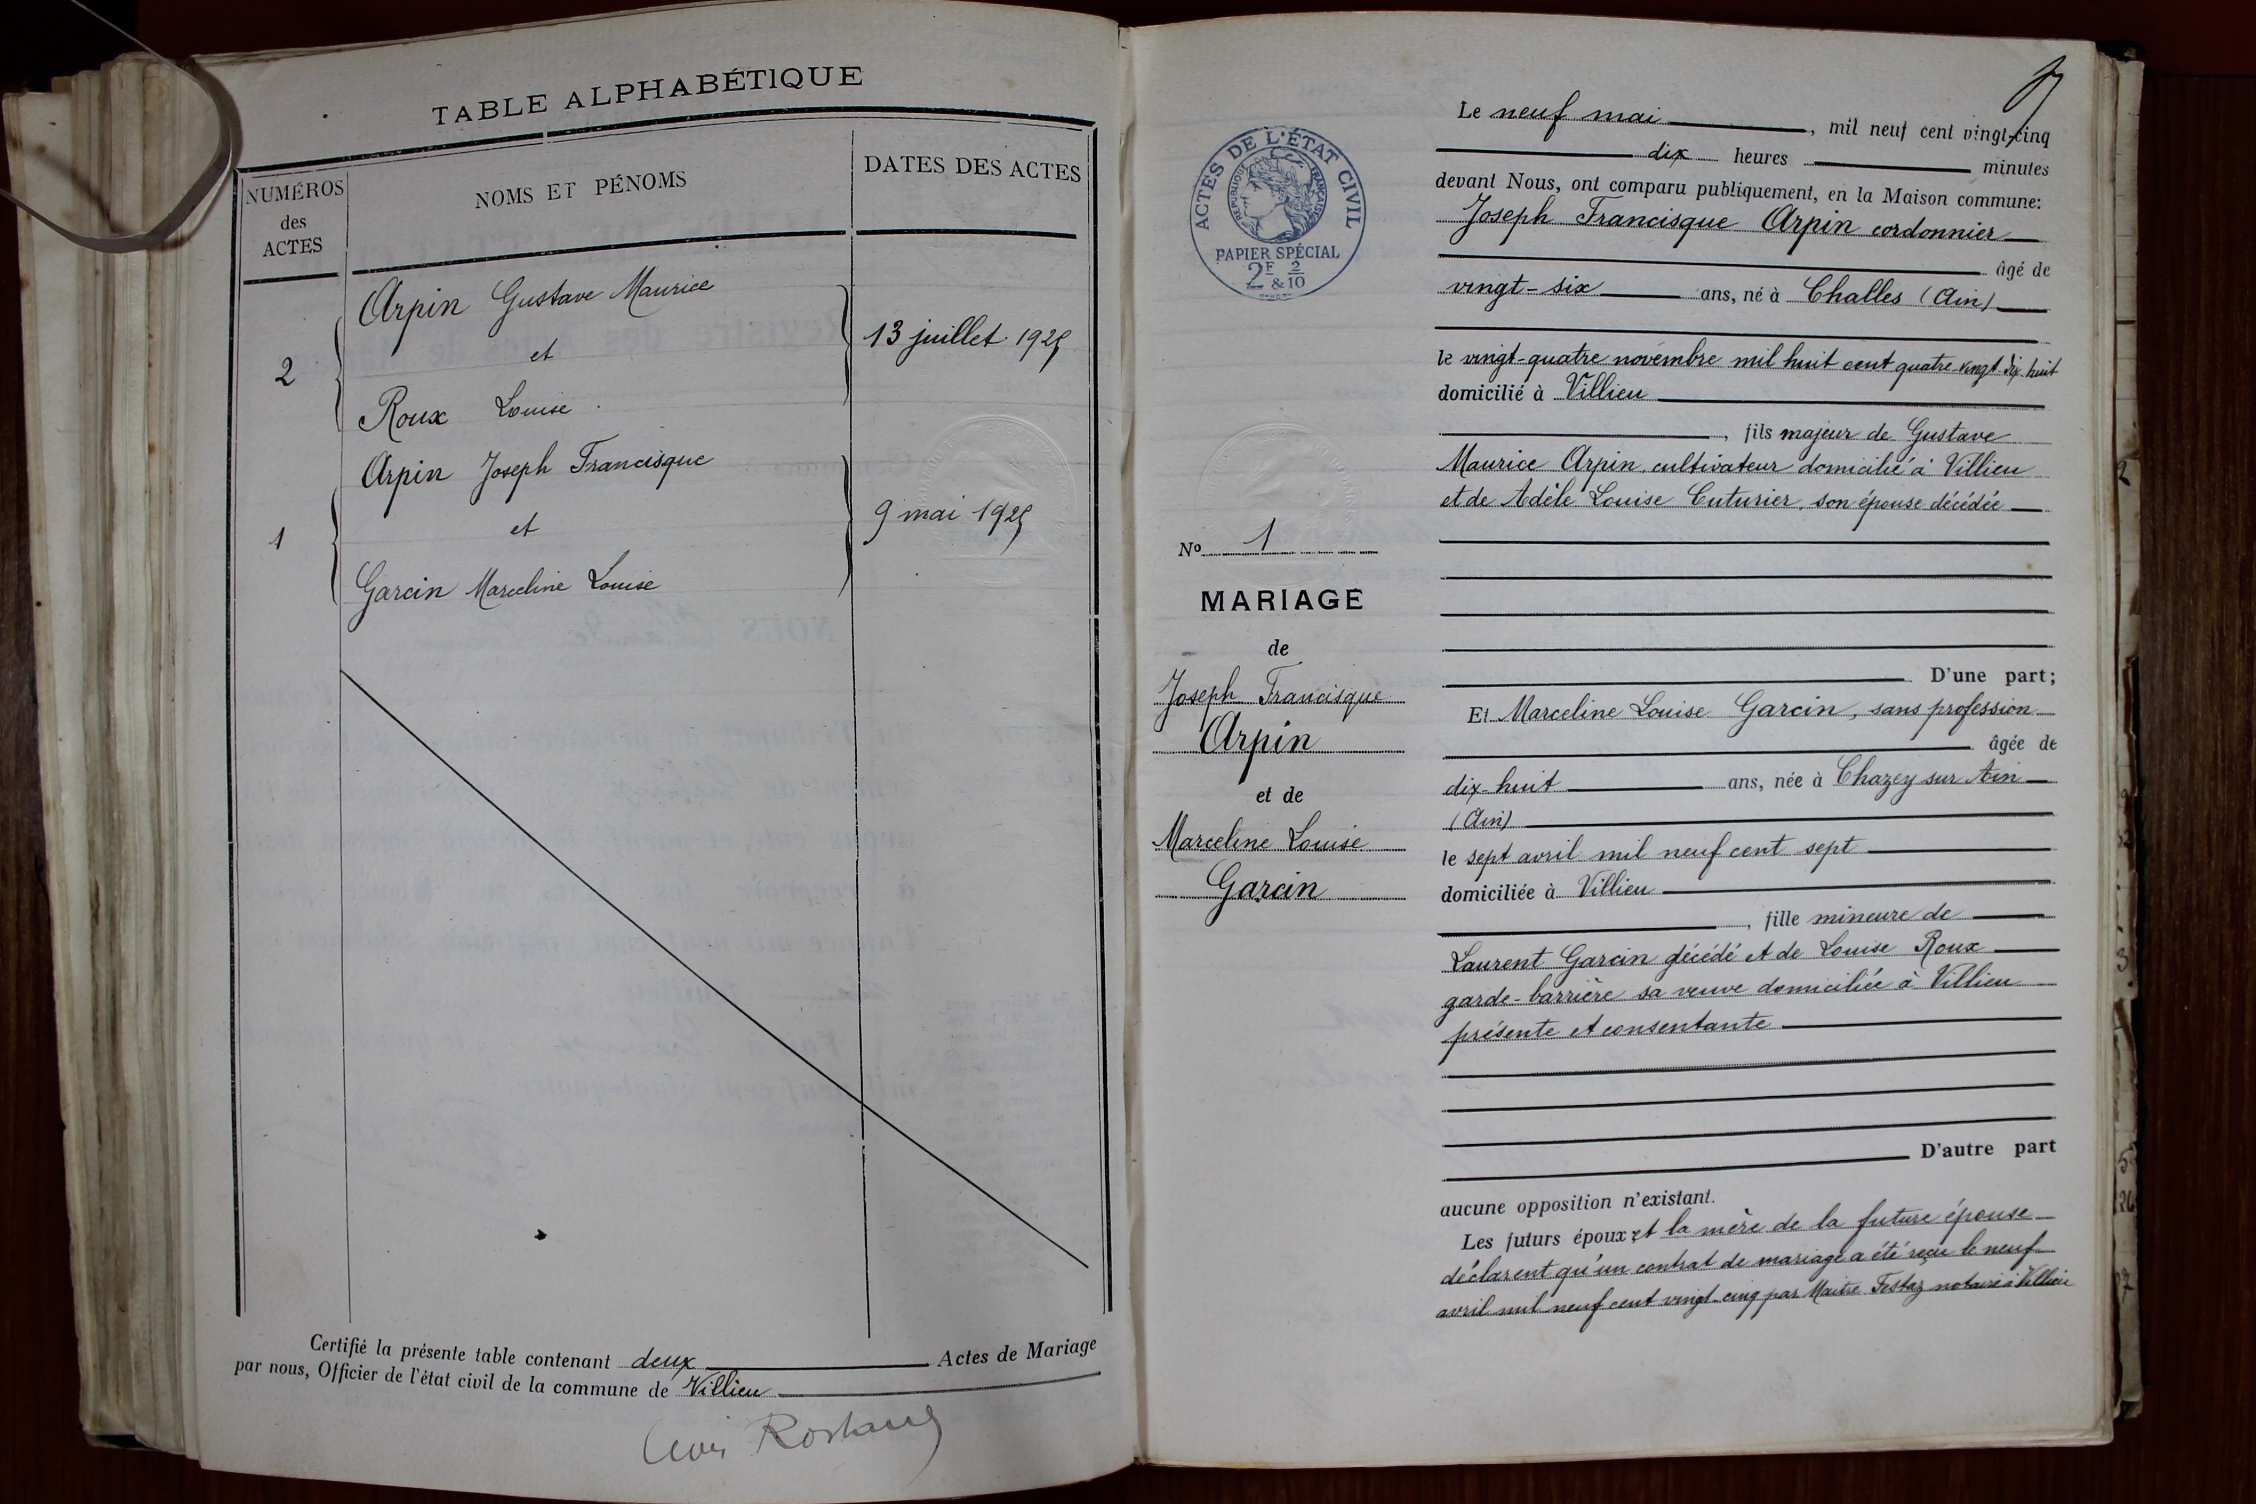 TABLE ALPHABÉTIQUE
NUMÉROS
des
ACTES
NOMS ET PÉNOMS
DATES DES ACTES
Arpin Gustave Maurice
et
2
13 juillet 1925
Roux Louise
Arpin Joseph Francisque
et
1
9 mai 1925
Garcin Marceline Louise
Certifié la présente table contenant deux Actes de Mariage
par nous, Officier de l'état civil de la commune de Villieu
ACTES DE L'ÉTAT CIVIL
RÉPUBLIQUE FRANÇAISE
PAPIER SPÉCIAL
2F & 2/10
No 1
MARIAGE
de
Joseph Francisque
Arpin
et de
Marceline Louise
Garcin
Le neuf mai, mil neuf cent vingt-cinq
dix heures minutes
devant Nous, ont comparu publiquement, en la Maison commune:
Joseph Francisque Arpin cordonnier
âgé de
vingt-six ans, né à Challes (Ain)
le vingt-quatre novembre mil huit cent quatre-vingt dix-huit
domicilié à Villieu
, fils majeur de Gustave
Maurice Arpin, cultivateur domicilié à Villieu
et de Adèle Louise Cuturier, son épouse décédée
D'une part;
Et Marceline Louise Garcin, sans profession
âgée de
dix-huit ans, née à Chazey sur Ain
(Ain)
le sept avril mil neuf cent sept
domiciliée à Villieu
, fille mineure de
Laurent Garcin décédé et de Louise Roux
garde-barrière sa veuve domiciliée à Villieu
présente et consentante
D'autre part
aucune opposition n'existant.
Les futurs époux et la mère de la future épouse
déclarent qu'un contrat de mariage a été reçu le neuf
avril mil neuf cent vingt-cinq par Maitre Festaz notaire à Villieu